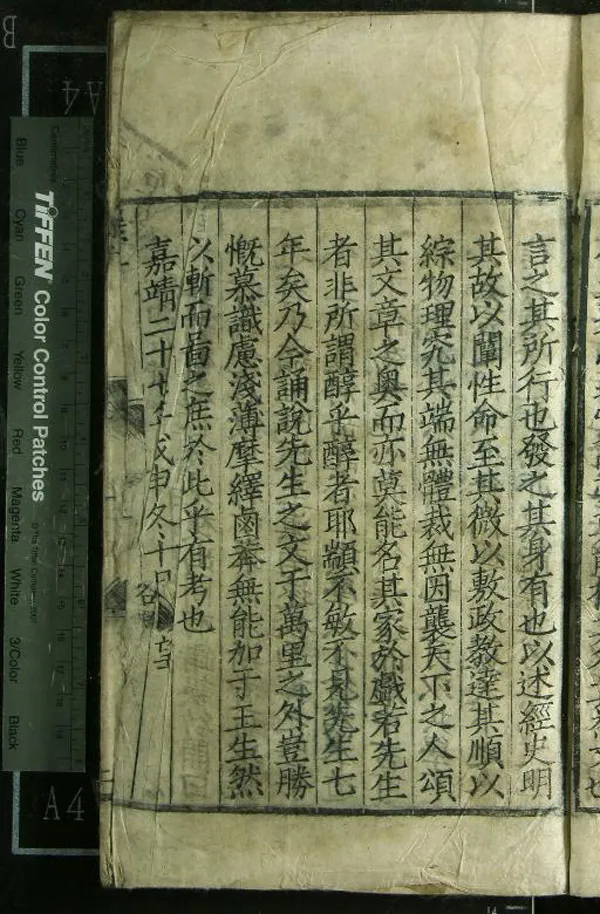 言之其所行也發之其身有也以述經史明
其故以闡性命至其微以敷政教達其順以
綜物理究其端無體裁無因襲天下之人頌
其文章之奧而亦莫能名其家於戲若先生
者非所謂醇乎醇者耶顓不敏不見先生七
年矣乃今誦說先生之文于萬里之外豈勝
慨慕識慮淺薄摩繹鹵莽無能加于玉生然
以斬而畐之庶於此乎有考也
嘉靖二十七年戊申冬十月望
TIFFEN Color Control Patches
Blue Cyan Green Yellow Red Magenta White 3/Color Black
A4
A4
B